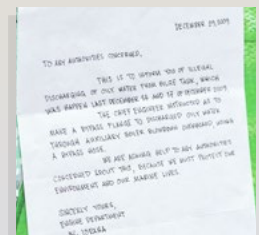 DECEMBER 29, 2009
TO ANY AUTHORITIES CONCERNED,
THIS IS TO INFORM YOU OF ILLEGAL
DISCHARGING OF OILY WATER FROM BILGE TANK, WHICH
WAS HAPPEN LAST DECEMBER 16 AND 17 OF DECEMBER 2009
THE CHIEF ENGINEER INSTRUCTED US TO
MAKE A BYPASS FLANGE TO DISCHARGED OILY WATER
THROUGH AUXILIARY BOILER BLOWDOWN OVERBOARD, USING
A BYPASS HOSE.
WE ARE ASKING HELP TO ANY AUTHORITIES
CONCERNED ABOUT THIS, BECAUSE WE MUST PROTECT OUR
ENVIRONMENT AND OUR MARINE LIVES.
SINCERLY YOURS,
ENGINE DEPARTMENT